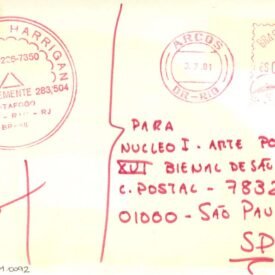 HARRIGAN
TEMENTE 283/504
BOTAFOGO
RIO - RJ
BRASIL
ARCOS
DR-RIO
PARA
NUCLEO I. ARTE PO
XVI BIENAL DE SÃO
C. POSTAL - 7832
01000 - SÃO PAU
SP
M.0092